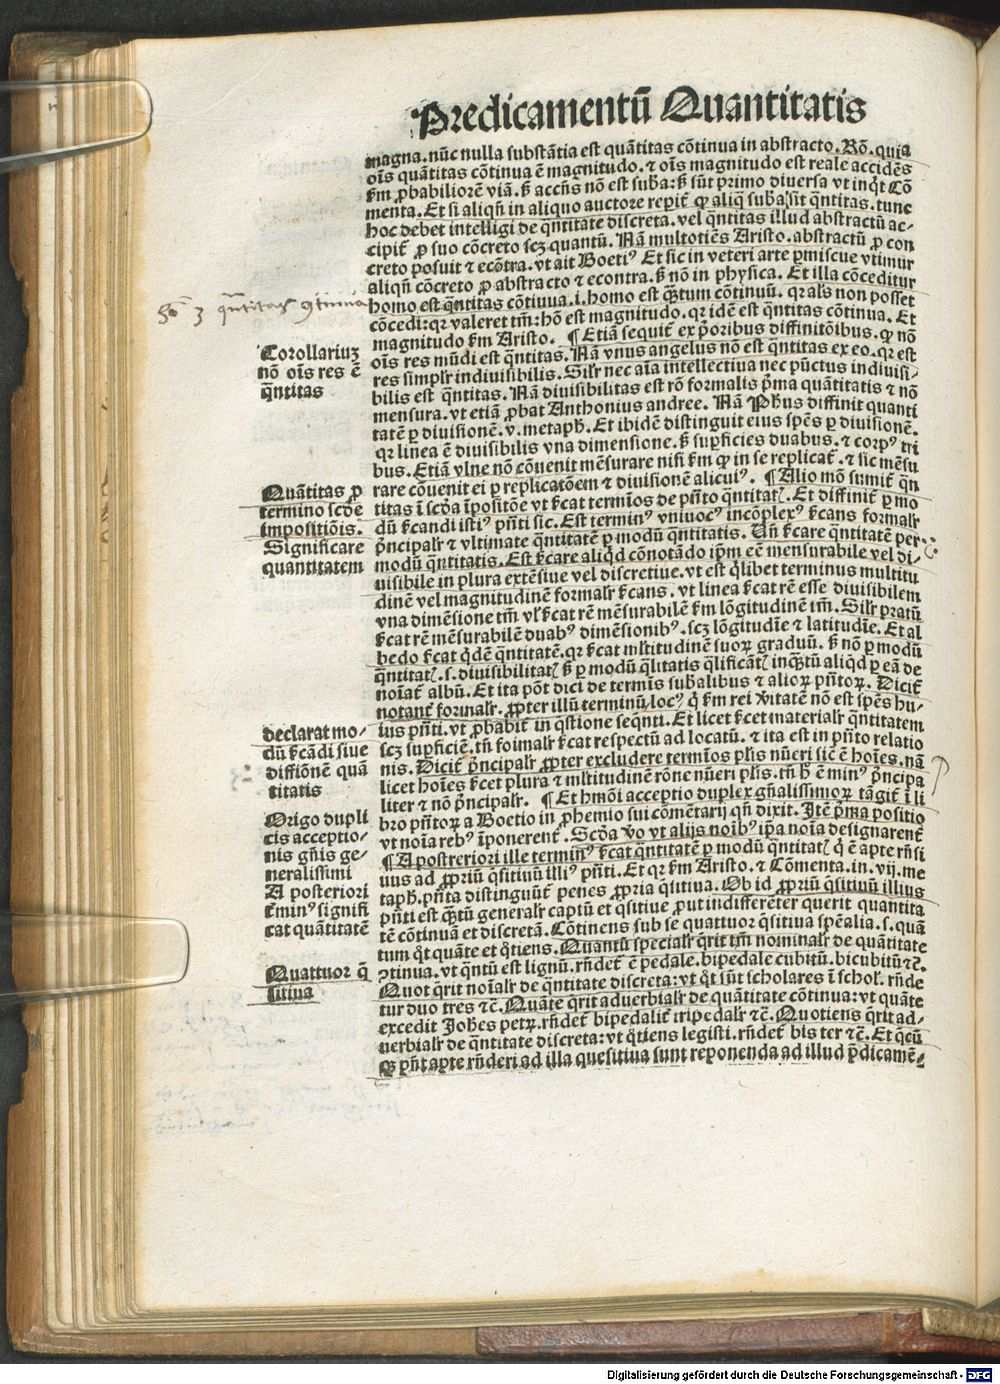 Predicamentū Quantitatis
magna. nūc nulla substātia est quātitas cōtinua in abstracto. Rō. quia
oīs quātitas cōtinua ē magnitudo. ⁊ oīs magnitudo est reale accidēs
km̄ ꝓbabiliorē viā. sꝫ accn̄s nō est suba: sꝫ sūt primo diuersa vt inqt Cō
menta. Et si aliqn̄ in aliquo auctore repit̄ ꝙ aliq̄ suba sit q̄ntitas. tunc
hoc debet intelligi de q̄ntitate discreta. vel q̄ntitas illud abstractū ac-
cipit̄ ꝓ suo cōcreto scꝫ quantū. Nā multotiēs Aristo. abstractū ꝓ con
creto posuit ⁊ ecōtra. vt ait Boetiꝰ Et sic in veteri arte ꝑmiscue vtimur
aliqn̄ cōcreto ꝓ abstracto ⁊ econtra. sꝫ nō in physica. Et illa cōceditur
homo est q̄ntitas cōtinua. i. homo est q̄tum continuū. qr als non posset
cōcedi: qr valeret tm̄: hō est magnitudo. qr idē est q̄ntitas cōtinua. Et
magnitudo km̄ Aristo. ¶ Etiā sequit̄ ex p̄oribus diffinitōibus. ꝙ nō
oīs res mūdi est q̄ntitas. Nā vnus angelus nō est q̄ntitas ex eo. qr est
res simplr indiuisibilis. Silr nec aīa intellectiua nec pūctus indiuisi-
bilis est q̄ntitas. Nā diuisibilitas est rō formalis p̄ma quātitatis ⁊ nō
mensura. vt etiā ꝓbat Anthonius andree. Nā Phūs diffinit quanti
tatē ꝑ diuisionē. v. metaph. Et ibidē distinguit eius spēs ꝑ diuisionē.
qr linea ē diuisibilis vna dimensione. sꝫ supficies duabus. ⁊ corpꝰ tri
bus. Etiā vlne nō cōuenit mēsurare nisi km̄ ꝙ in se replicat̄. ⁊ sic mēsu
rare cōuenit ei ꝑ replicatōem ⁊ diuisionē alicuiꝰ. ¶ Alio mō sumit̄ q̄n
titas ī scda īpositōe vt kcat termīos de p̄nto q̄ntitat. Et diffinit̄ ꝑ mo
dū kcandi istiꝰ p̄nti sic. Est terminꝰ vniuocꝰ incōplexꝰ kcans formalr
p̄ncipalr ⁊ vltimate q̄ntitatē ꝑ modū q̄ntitatis. Un̄ kcare q̄ntitatē per
modū q̄ntitatis. Est kcare aliqd cōnotādo ipm eē mensurabile vel di-
uisibile in plura extēsiue vel discretiue. vt est qlibet terminus multitu
dinē vel magnitudinē formalr kcans. vt linea kcat rē esse diuisibilem
vna dimēsione tm̄ vl kcat rē mēsurabilē km̄ lōgitudinē tm̄. Silr pratū
kcat rē mēsurabilē duabꝰ dimēsionibꝰ. scꝫ lōgitudīe ⁊ latitudīe. Et al
bedo kcat qdē q̄ntitatē. qr kcat mltitudinē suoꝝ graduū. sꝫ nō ꝑ modū
q̄ntitat. s. diuisibilitat sꝫ ꝑ modū q̄litatis q̄lificāt inq̄tū aliqd ꝑ eā de
noīat̄ albū. Et ita pōt dici de termīs subalibus ⁊ alioꝝ p̄ntoꝝ. Dicit̄
notant̄ formalr. ꝓpter illū terminū locꝰ q̄ km̄ rei v̄itatē nō est spēs hu-
ius p̄nti. vt ꝓbabit̄ in q̄stione seq̄nti. Et licet kcet materialr q̄ntitatem
scꝫ supficiē. tn̄ foimalr kcat respectū ad locatū. ⁊ ita est in p̄nto relatio
nis. Dicit̄ p̄ncipalr ꝓpter excludere termīos plis nūeri sic ē hoīes. nā
licet hoīes kcet plura ⁊ mltitudinē rōne nūeri plis. tn̄ h̄ ē minꝰ p̄ncipa
liter ⁊ nō p̄ncipalr. ¶ Et hmōi acceptio duplex gn̄alissimoꝝ tāgit̄ ī li
bro p̄ntoꝝ a Boetio in ꝓhemio sui cōmētarij qn̄ dixit. Itē p̄ma positio
vt noīa rebꝰ īponerent̄. Scda v̄o vt alijs noībꝰ ipa noīa designarent̄
¶ A postreriori ille terminꝰ kcat q̄ntitatē ꝑ modū q̄ntitat q̄ ē apte rn̄si
uus ad ꝓpriū q̄sitiuū illiꝰ p̄nti. Et qr km̄ Aristo. ⁊ Cōmenta. in. vij. me
taph. p̄nta distinguūt̄ penes ꝓpria q̄sitiua. Ob id ꝓpriū q̄sitiuū illius
p̄nti est q̄tū generalr captū et q̄sitiue ꝓut indifferēter querit quantita
tē cōtinuā et discretā. Cōtinens sub se quattuor q̄sitiua spēalia. s. quā
tum qt quāte et qtiens. Quantū specialr q̄rit tm̄ nominalr de quātitate
ꝯtinua. vt q̄ntū est lignū. rn̄det̄ ē pedale. bipedale cubitū. bicubitū ⁊c̄.
Quot q̄rit noīalr de q̄ntitate discreta: vt qt sūt scholares ī schol. rn̄de
tur duo tres ⁊c̄. Quāte q̄rit aduerbialr de quātitate cōtinua: vt quāte
excedit Johēs petrꝝ. rn̄det̄ bipedalit̄ tripedalr ⁊c̄. Quotiens q̄rit ad-
uerbialr de q̄ntitate discreta: vt qtiens legisti. rn̄det̄ bis ter ⁊c̄. Et q̄cū
qꝫ p̄nt apte rn̄deri ad illa quesitiua sunt reponenda ad illud p̄dicamē-
q̄ntitas ꝯtinua
Corollariuꝫ
nō oīs res ē
q̄ntitas
Quātitas ꝓ
termino scdē
impositiōis.
Significare
quantitatem
declarat mo-
dū kcādi siue
diffiōnē quā
titatis
Origo dupli
cis acceptio-
nis gn̄is ge-
neralissimi
A posteriori
t̄minꝰ signifi
cat quātitatē
Quattuor q̄
sitiua
Digitalisierung gefördert durch die Deutsche Forschungsgemeinschaft - DFG